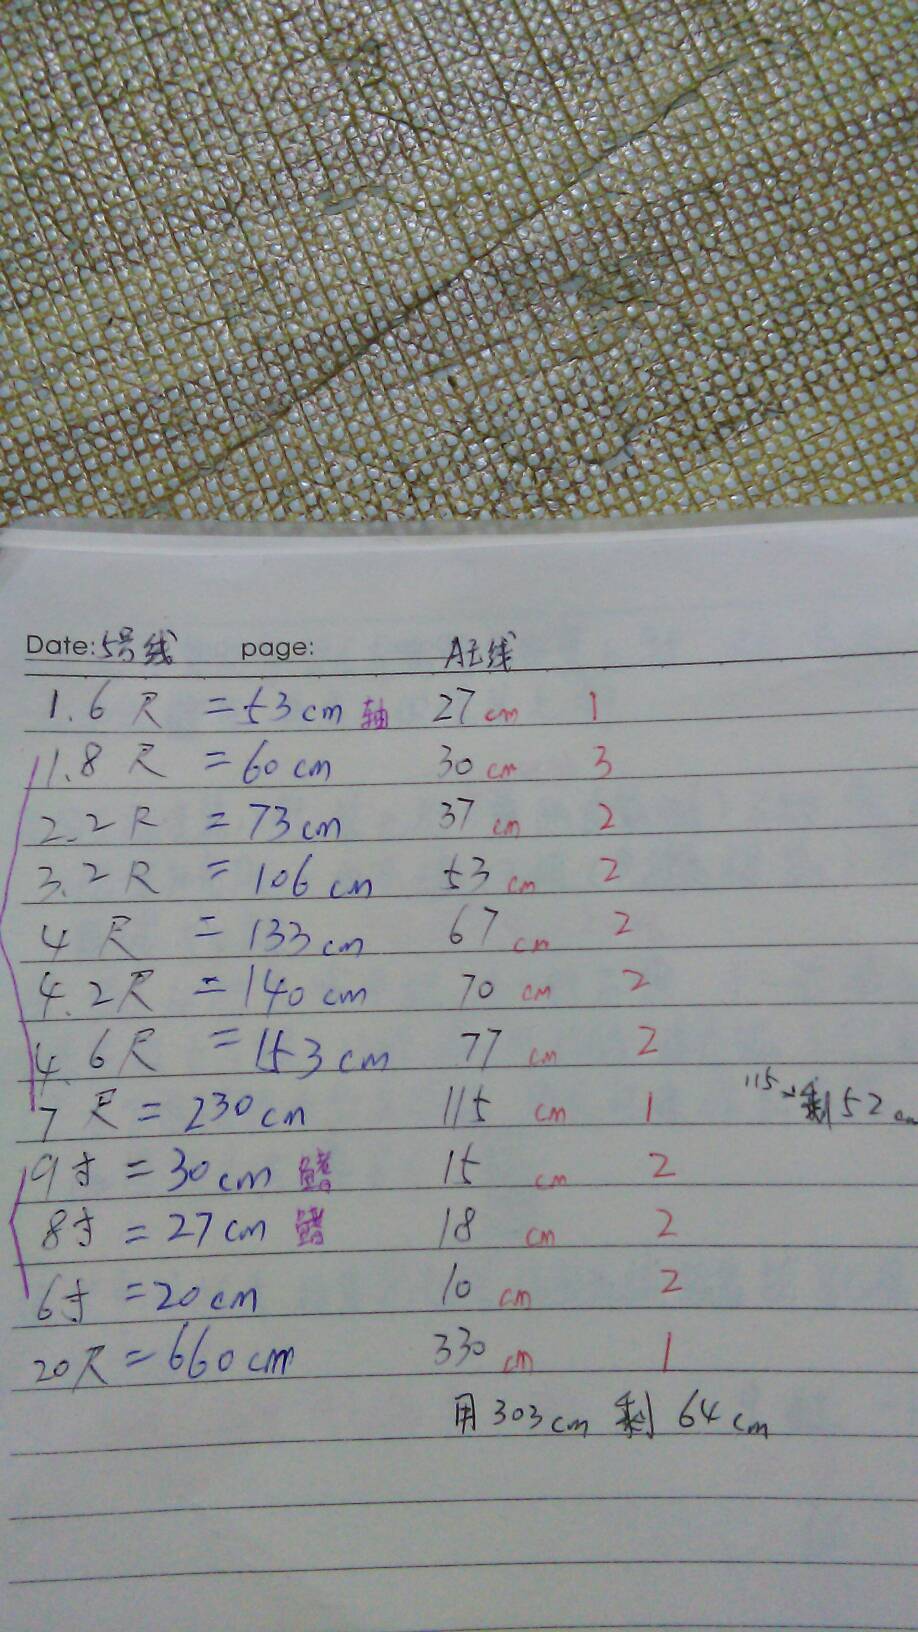 Date: 5号线 page: A玉线
1.6尺 = 53cm 轴 27cm 1
1.8尺 = 60cm 30cm 3
2.2尺 = 73cm 37cm 2
3.2尺 = 106cm 53cm 2
4尺 = 133cm 67cm 2
4.2尺 = 140cm 70cm 2
4.6尺 = 153cm 77cm 2
7尺 = 230cm 115cm 1 115→剩52cm
9寸 = 30cm 15cm 2
8寸 = 27cm 18cm 2
6寸 = 20cm 10cm 2
20尺 = 660cm 330cm 1
用303cm 剩64cm